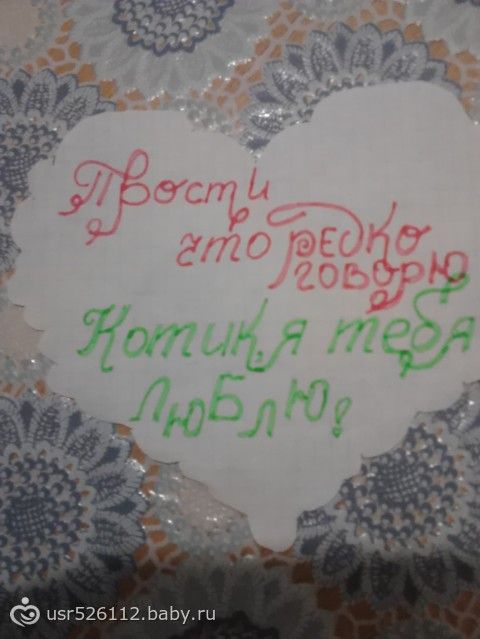 Прости
что редко
говорю
Котик, я тебя
люблю!
usr526112.baby.ru